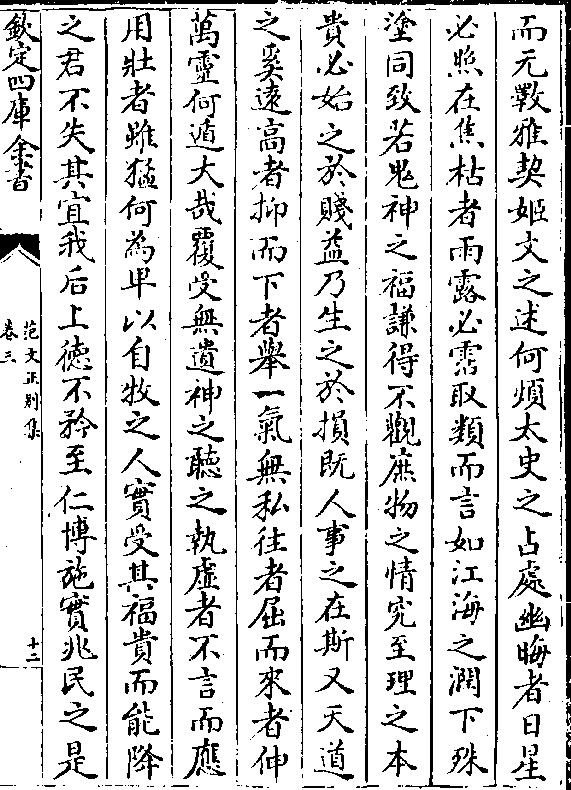 而元斁雅契姬文之述何煩太史之占處幽晦者日星
必照在焦枯者雨露必霑取類而言如江海之潤下殊
塗同致若鬼神之福謙得不觀庶物之情究至理之本
貴必始之於賤益乃生之於損既人事之在斯又天道
之奚遠高者抑而下者舉一氣無私往者屈而來者伸
萬靈何遁大哉覆受無遺神之聽之執虛者不言而應
用壯者雖猛何為卑以自牧之人實受其福貴而能降
之君不失其宜我后上德不矜至仁博施實兆民之是
欽定四庫全書
范文正別集
卷三
十二